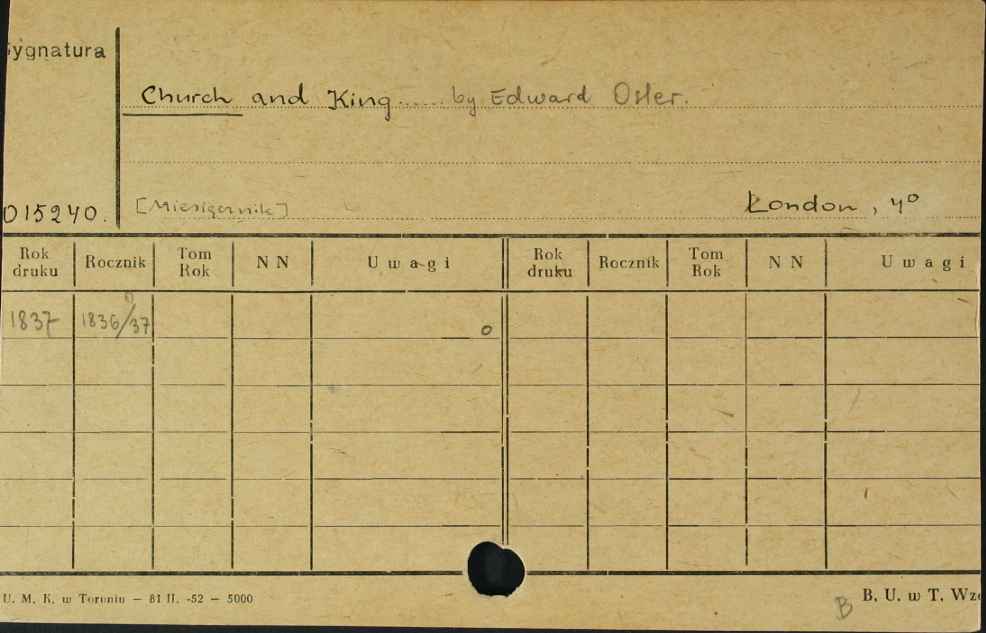 Sygnatura
Church and King...... by Edward Osler.
015240. [Miesięcznik] London, 4°
Rok druku Rocznik Tom Rok N N U w a g i Rok druku Rocznik Tom Rok N N U w a g i
1837 1836/37 o
U. M. K. w Toruniu — 81 II. -52 — 5000
B
B. U. w T.